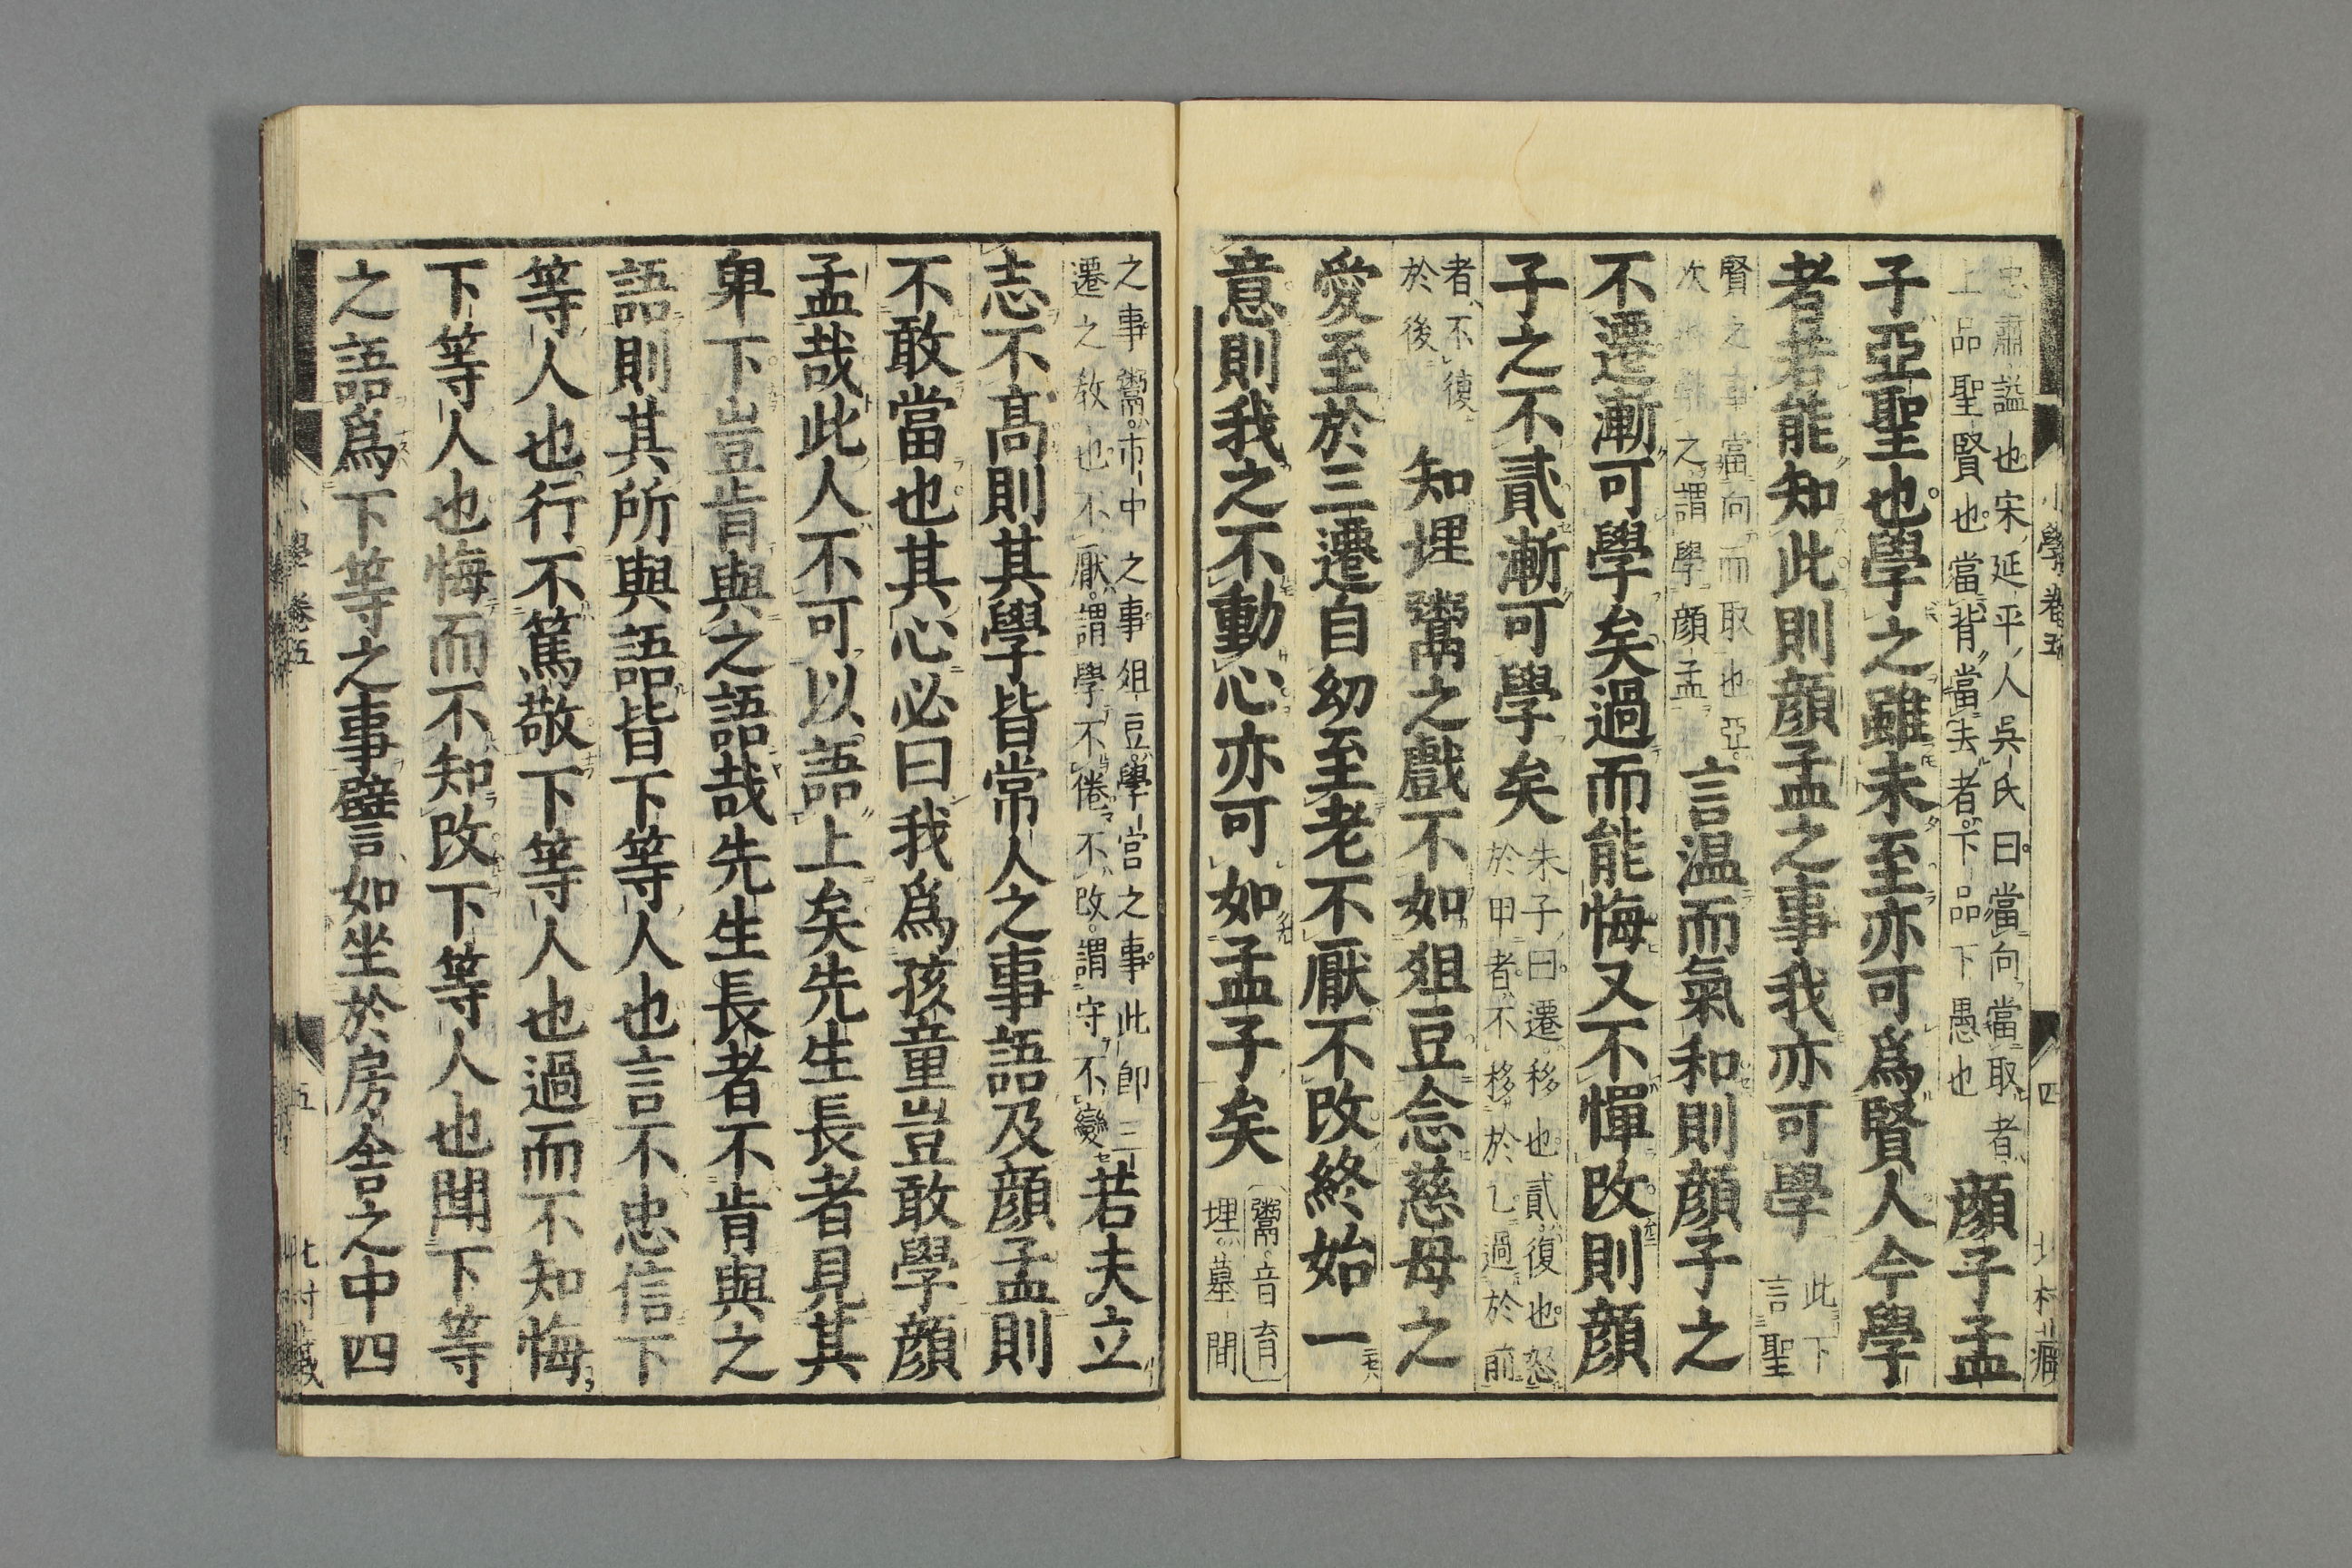 小學卷五 四 北村藏
忠肅謚也宋延平人吳氏曰當向當取者
上品聖賢也當背當去者下品下愚也
顔子孟
子亞聖也學之雖未至亦可爲賢人今學
者若能知此則顔孟之事我亦可學
此下
言聖
賢之事當向而取也亞
次也
之謂學顔孟
言温而氣和則顔子之
不遷漸可學矣過而能悔又不憚改則顔
子之不貳漸可學矣
朱子曰遷移也貳復也怒
於甲者不移於乙過於前
者不復
於後
知埋鬻之戲不如俎豆念慈母之
愛至於三遷自幼至老不厭不改終始一
意則我之不動心亦可如孟子矣
鬻音育
埋墓間
之事鬻市中之事俎豆學宮之事此即三
遷之教也不厭謂學不倦不改謂守不變
若夫立
志不髙則其學皆常人之事語及顔孟則
不敢當也其心必曰我爲孩童豈敢學顔
孟哉此人不可以語上矣先生長者見其
卑下豈肯與之語哉先生長者不肯與之
語則其所與語皆下等人也言不忠信下
等人也行不篤敬下等人也過而不知悔
下等人也悔而不知改下等人也聞下等
之語爲下等之事譬如坐於房舎之中四
小學卷五 五 北村藏